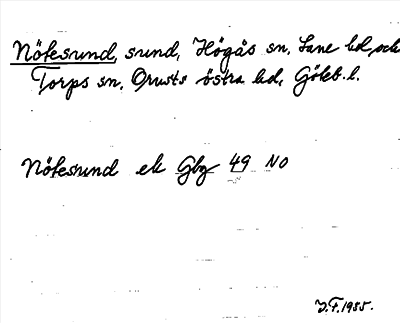 Nötesund, sund, Högås sn, Lane hd, och
Torps sn, Orusts östra hd, Göteb. l.
Nötesund ek Gbg 49 NO
J.F. 1985.